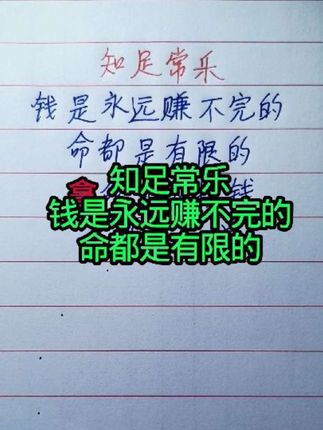 知足常乐
钱是永远赚不完的
命都是有限的
拿
钱
知足常乐
钱是永远赚不完的
命都是有限的